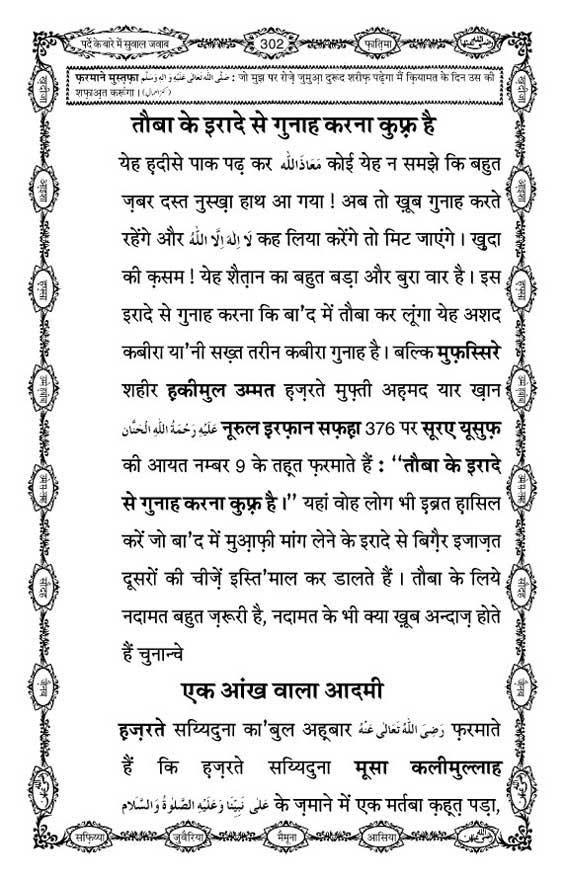 पर्दे के बारे में सुवाल जवाब
302
फ़ातिमा
फ़रमाने मुस्तफ़ा صَلَّى اللهُ تَعَالٰى عَلَيْهِ وَاٰلِهٖ وَسَلَّم : जो मुझ पर रोज़े जुमुआ़ दुरूद शरीफ़ पढ़ेगा मैं क़ियामत के दिन उस की
शफ़ाअ़त करूंगा ।
तौबा के इरादे से गुनाह करना कुफ़्र है
येह ह़दीसे पाक पढ़ कर مَعَاذَاللّٰه कोई येह न समझे कि बहुत
ज़बर दस्त नुस्ख़ा हाथ आ गया ! अब तो ख़ूब गुनाह करते
रहेंगे और لَا اِلٰهَ اِلَّا اللّٰهُ कह लिया करेंगे तो मिट जाएंगे । खुदा
की क़सम ! येह शैत़ान का बहुत बड़ा और बुरा वार है । इस
इरादे से गुनाह करना कि बा'द में तौबा कर लूंगा येह अशद
कबीरा या'नी सख़्त तरीन कबीरा गुनाह है । बल्कि मुफ़स्सिरे
शहीर ह़कीमुल उम्मत ह़ज़रते मुफ़्ती अह़मद यार ख़ान
عَلَيْهِ رَحْمَةُ اللّٰهِ الْحَنَّان नूरुल इरफ़ान सफ़ह़ा 376 पर सूरए यूसुफ़
की आयत नम्बर 9 के तह़्त फ़रमाते हैं : ‘‘तौबा के इरादे
से गुनाह करना कुफ़्र है ।’’ यहां वोह लोग भी इब्रत ह़ासिल
करें जो बा'द में मुआ़फ़ी मांग लेने के इरादे से बिग़ैर इजाज़त
दूसरों की चीज़ें इस्ति'माल कर डालते हैं । तौबा के लिये
नदामत बहुत ज़रूरी है, नदामत के भी क्या ख़ूब अन्दाज़ होते
हैं चुनान्चे
एक आंख वाला आदमी
ह़ज़रते सय्यिदुना का'बुल अह़्बार رَضِىَ اللّٰهُ تَعَالٰى عَنْهُ फ़रमाते
हैं कि ह़ज़रते सय्यिदुना मूसा कलीमुल्लाह
عَلٰى نَبِيِّنَا وَعَلَيْهِ الصَّلٰوةُ وَالسَّلَام के ज़माने में एक मर्तबा क़ह़्त़ पड़ा,
सफ़िय्या
जुवैरिया
मैमूना
आसिया